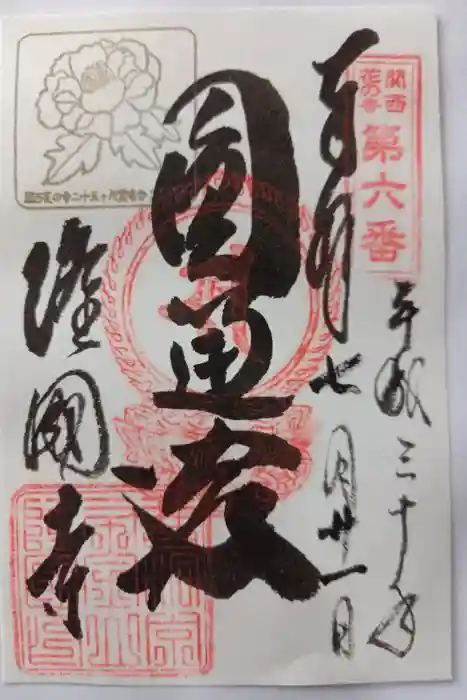 関西
花の寺
第六番
平成三十年
七月廿一日
奉拝
圓通殿
隆國寺